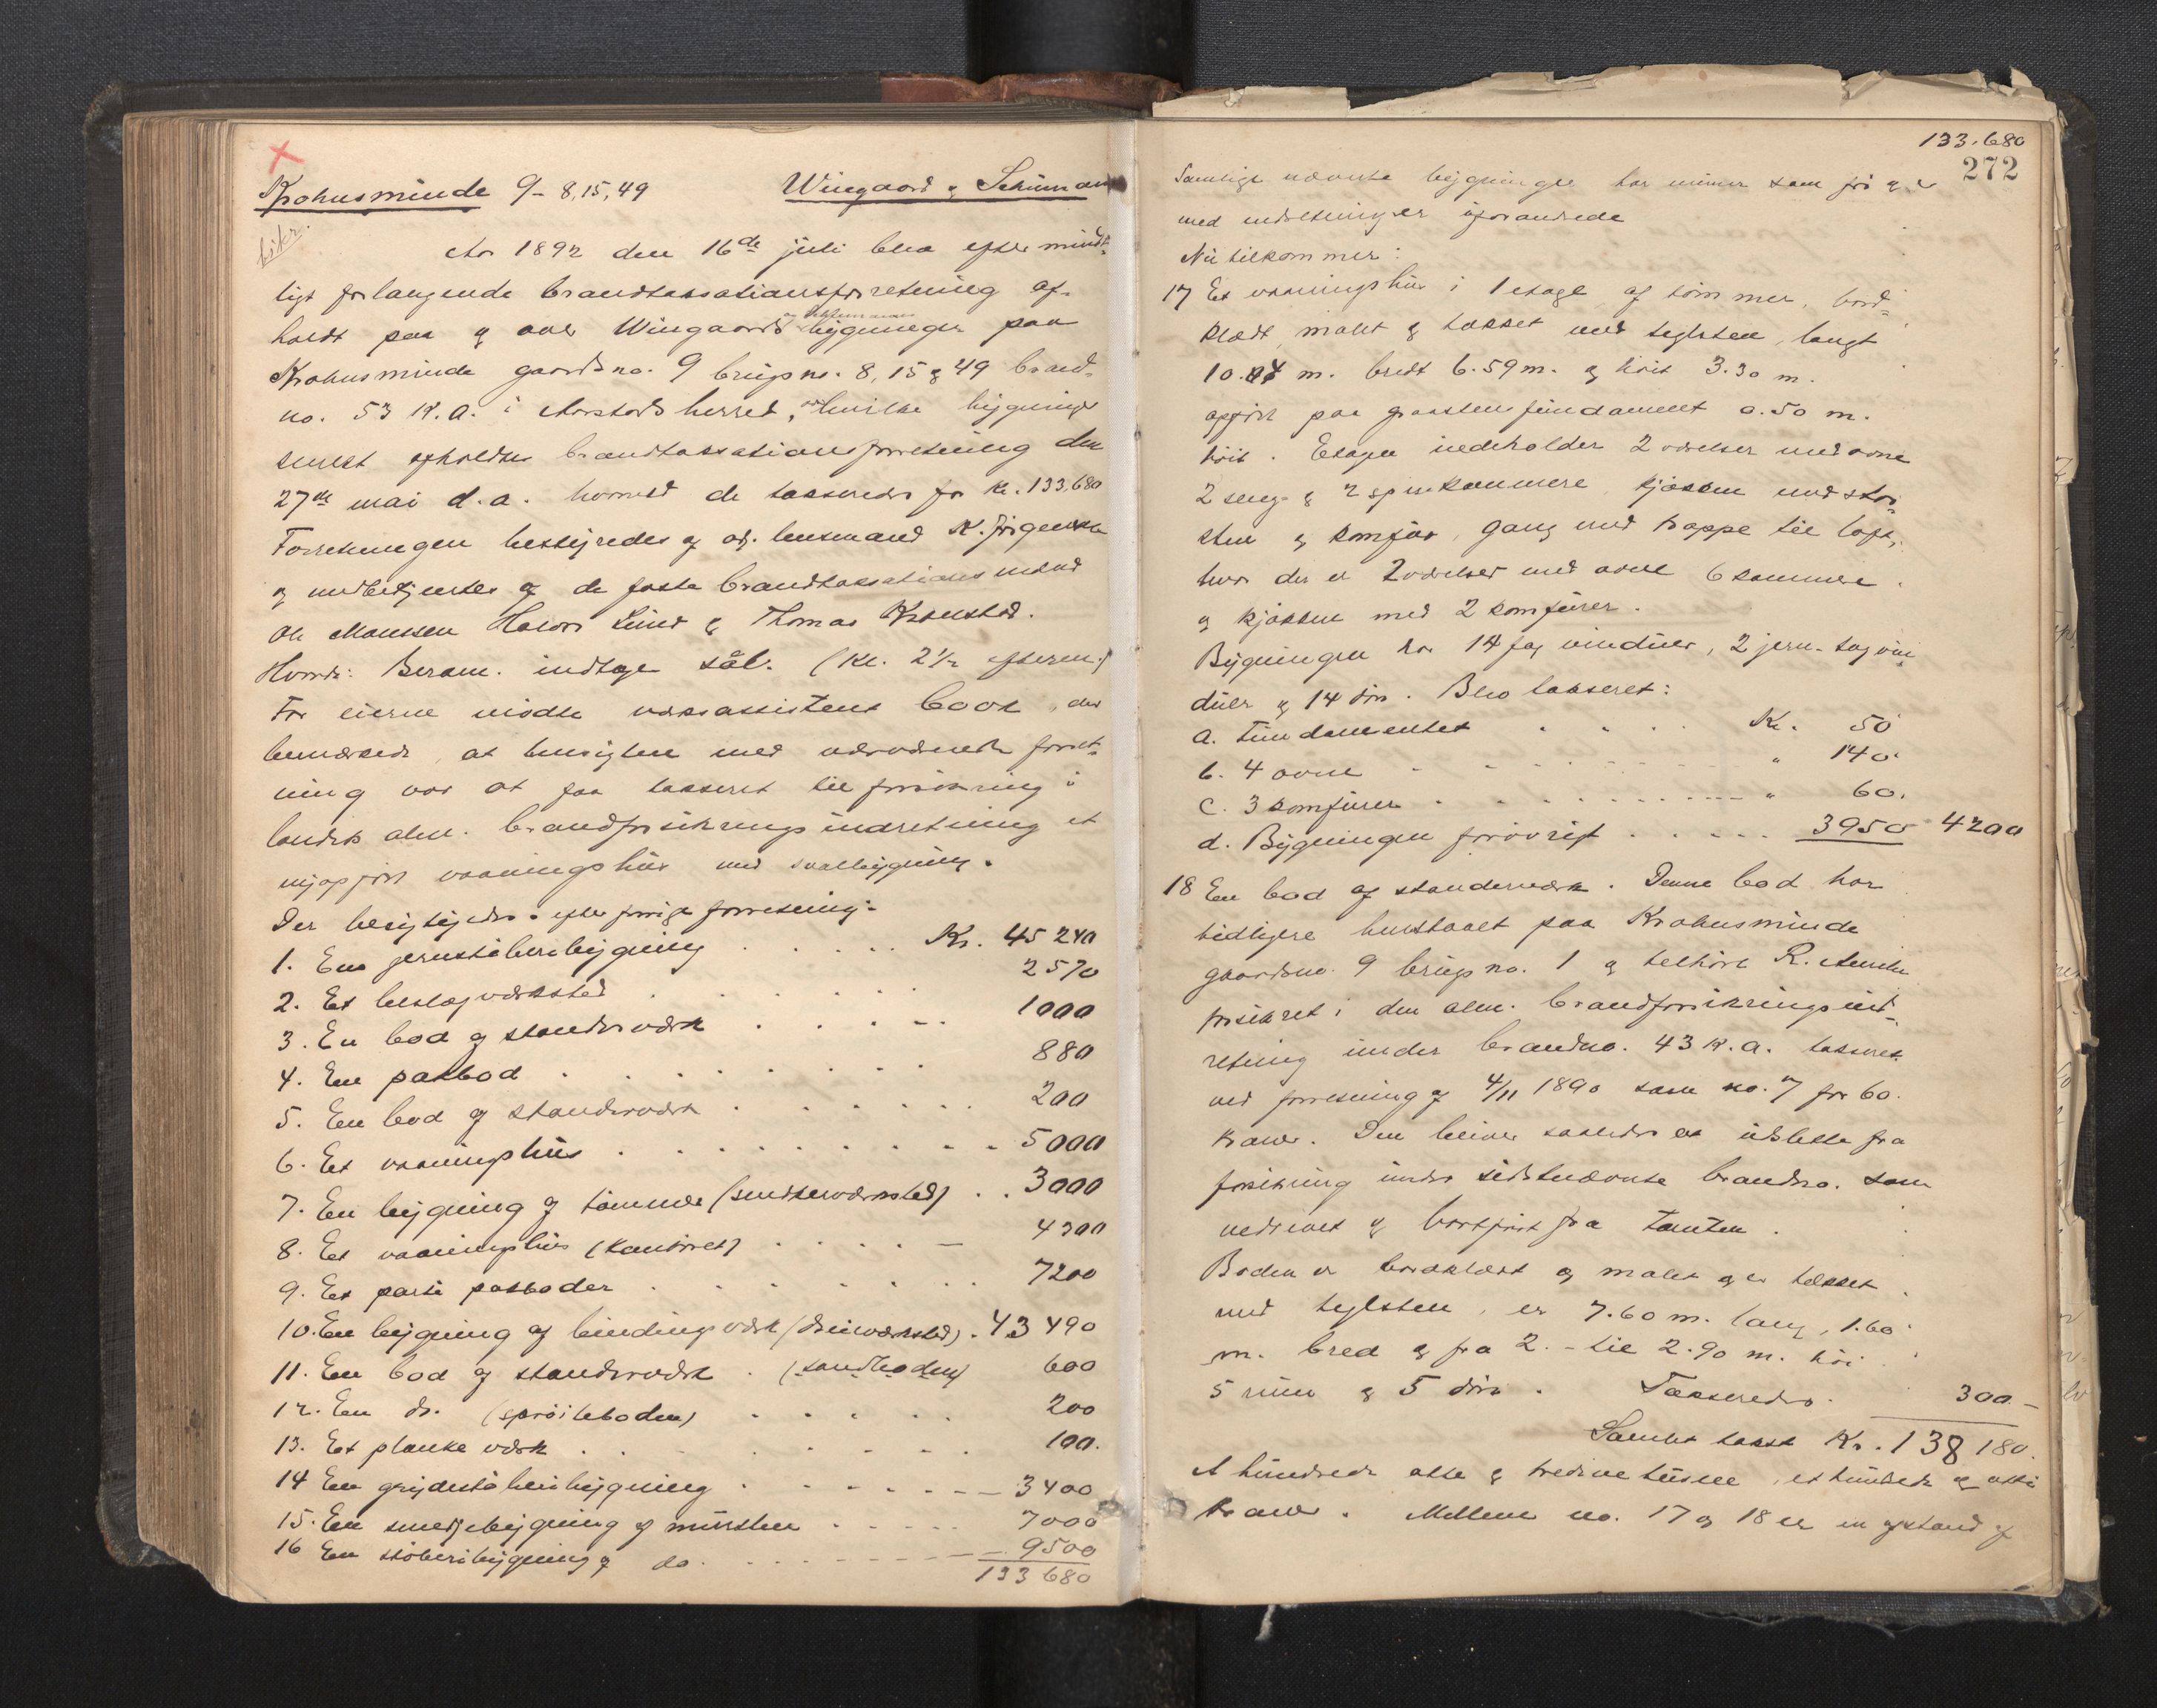 Krohnsminde 9 - 8, 15, 49 Wingaard & Schuman
bikr.
Aar 1892 den 16de juli blev efter mundt-
ligt forlangende brandtaxationsforretning af-
holdt paa og over Wingaards og Schumanns bygninger paa
Krohnsminde gaardsno. 9 brugsno. 8, 15 & 49 brand-
no. 53 K.a. i Aarstads herred, over hvilke bygninger
senest afholdtes brandtaxationsforretning den
27de mai d.a. hvorved de taxeredes for Kr. 133,680
Forretningen bestyredes af o.f. lensmand K. Jørgensen
og medbetjentes af de faste brandtaxationsmænd
Ole Monssen Haldor Lund & Thomas Kronstad.
Hvorda: Beram. indtage sål. (Kl. 2 1/2 efterm.)
For eierne mødte assistent Cook, der
bemærkede, at hensigten med nærværende forret-
ning var at faa taxeret til forsikring i
landets alm. brandforsikringsindretning et
nyopført vaaningshus med svalbygning.
Der besigtigedes efter forrige forretning:
1. En jernstøberibygning . . . . . Kr. 45 240
2. Et beslagværksted . . . . . 2570
3. En bod af standerværk . . . . . 1000
4. En pakbod . . . . . 880
5. En bod af standerværk . . . . . 200
6. Et vaaningshus . . . . . 5000
7. En bygning af tømmer (snedkerværksted) . . 3000
8. Et vaaningshus (kontoret) . . . . . 4300
9. Et parti pakboder . . . . . 7200
10. En bygning af bindingsværk (dreieværksted) . 43 490
11. En bod af standerværk . (sandboden) 600
12. En do. (sprøiteboden) . . . . . 200
13. Et plankeværk . . . . . 100.
14 En grydestøberibygning . . . . . 3400
15. En smedjebygning af mursten . . . . . 7000
16 En støberibygning af do. . . . . . 9500
133 680
133.680
272
Samtlige nævnte bygninger har numer som før & er
med indretninger uforandrede
Nu tilkommer:
17 Et vaaningshus i 1 etage af tømmer, bord-
klædt, malet & tækket med teglsten, langt
10. m. bredt 6.59 m. og høit 3.30 m.
opført paa graastensfundament 0.50 m.
høit. Etagen indeholder 2 værelser med ovne
2 seng- & 2 spisekammere kjøkken med skor-
sten og komfur, gang med trappe til loft,
hvor der er 2 værelser med ovne 6 kammere
og kjøkken med 2 komfurer.
Bygningen har 14 fag vinduer, 2 jern-tagvin
duer & 14 døre. Blev taxeret:
a. Fundamentet . . . . Kr. 50
b. 4 ovne . . . . . " 140.
c. 3 komfurer . . . . . " 60.
d. Bygningen forøvrigt . . . . . 3950 4200
18 En bod af standerværk. Denne bod har
tidligere henstaaet paa Krohnsminde
gaardsno. 9 brugsno. 1 og tilhørt R.
forsikret i den alm. brandforsikringsind-
retning under brandno. 43 K.a. taxeret
ved forretning af 4/11 1890 som no. 7 for 60.
kroner. Den bliver saaledes at udslette fra
forsikring under sidstnævnte brandno. som
nedrevet & bortført fra tomten.
Boden er bordklædt og malet og er tækket
med teglsten, er 7.60 m. lang, 1.60
m. bred og fra 2. - til 2.90 m. høi.
5 rum & 5 døre. Taxeredes. 300.-
Samlet taxt Kr. 138 180.
Et hundrede otte & tredive tusen, et hundrede og otti
kroner. Mellem no. 17 og 18 er en afstand af